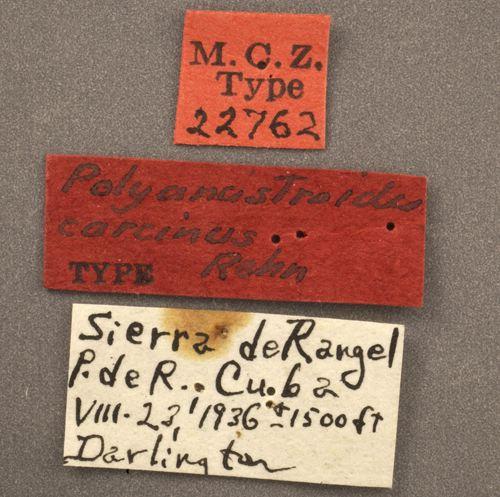 M.C.Z.
Type
22762
Polyancistroides
carcinus
TYPE Rehn
Sierra de Rangel
P. de R. Cuba
VIII-23, 1936 ±1500 ft
Darlington